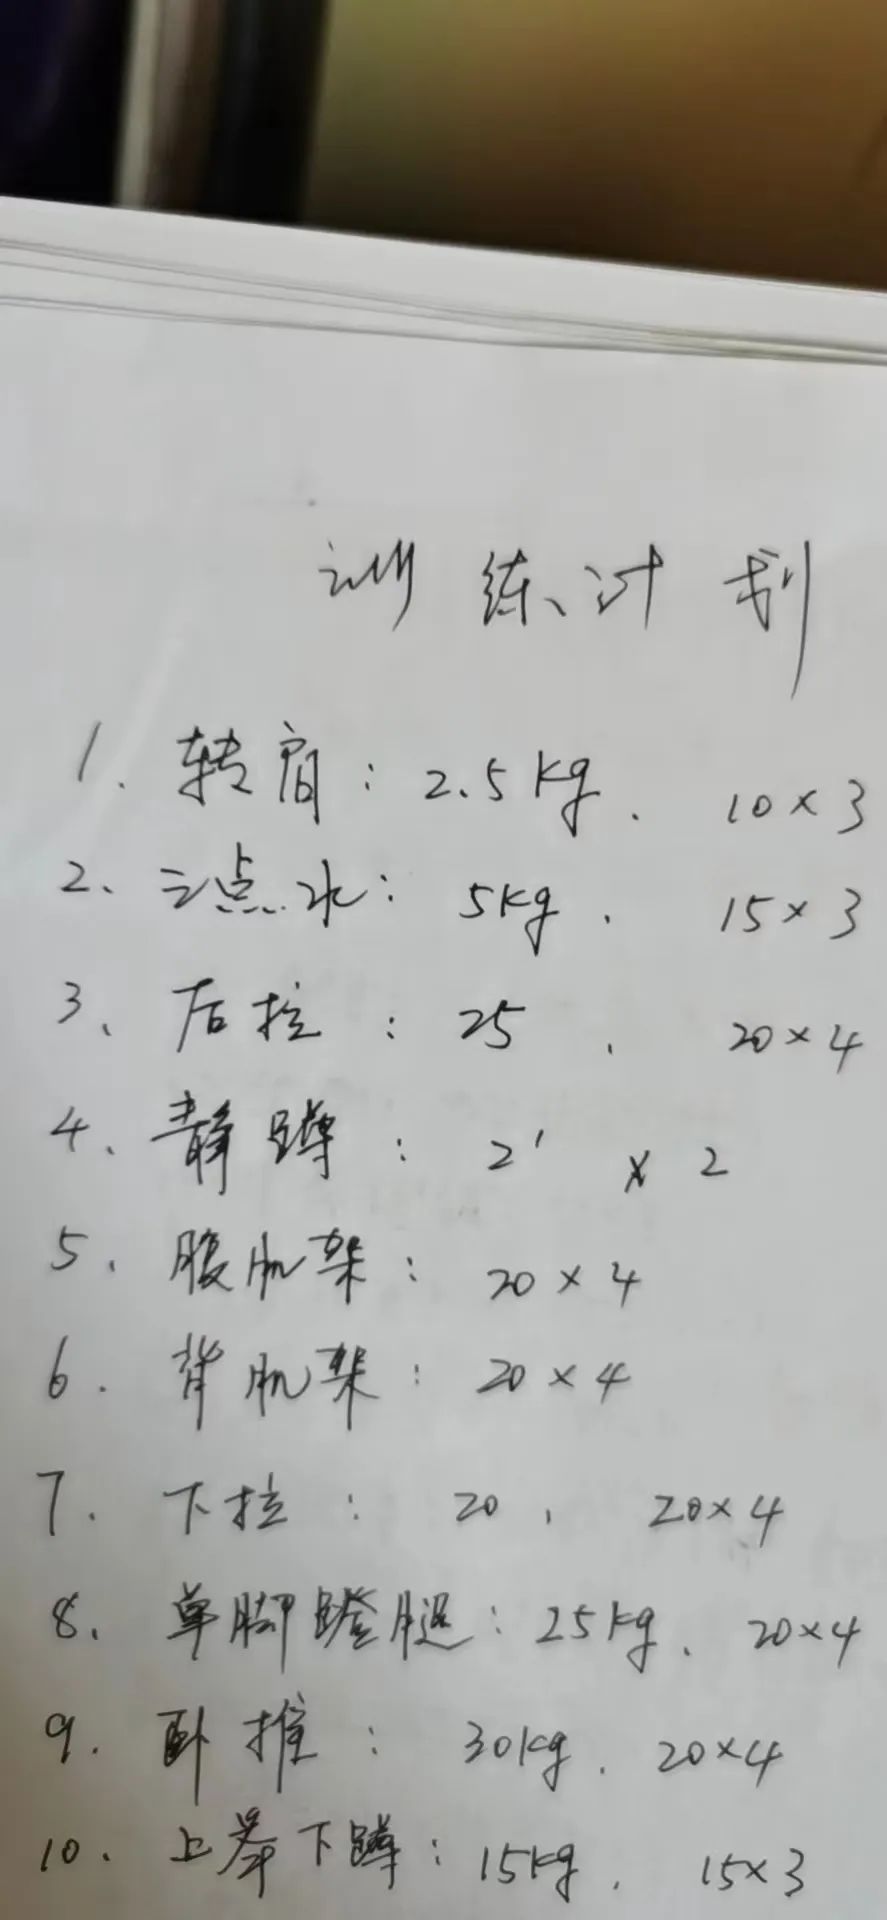 训练计划
1. 转肩: 2.5kg. 10×3
2、三点水: 5kg. 15×3
3、后拉: 25. 20×4
4. 静蹲: 2' × 2
5. 腹肌架: 20×4
6. 背肌架: 20×4
7. 下拉: 20, 20×4
8. 单脚蹬腿: 25kg. 20×4
9. 卧推: 30kg. 20×4
10. 上举下蹲: 15kg. 15×3